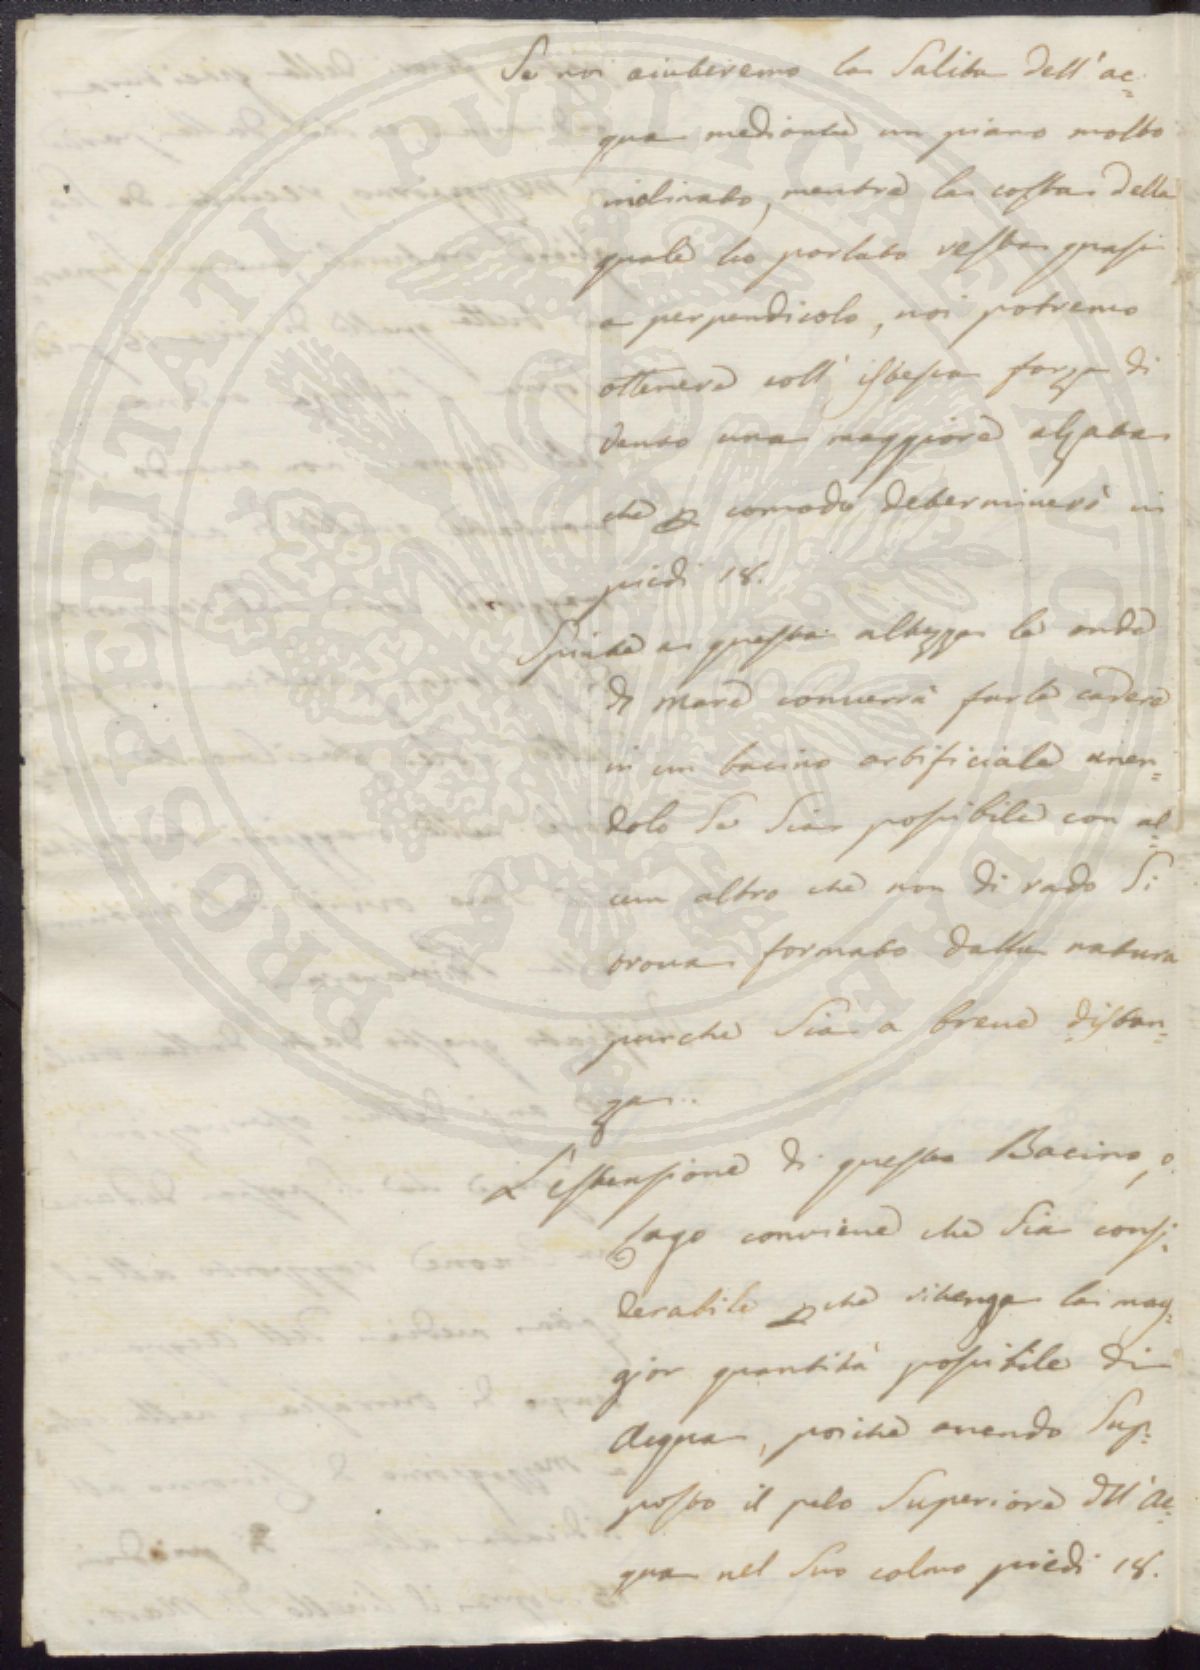 Se noi aiuteremo la Salita dell'ac=
qua mediante un piano molto
inclinato, mentre la costa della
quale ho parlato resta quasi
a perpendicolo, noi potremo
ottenere coll'istessa forza di
vento una maggiore alzata
che p comodo determinerò in
piedi 18.
Spinte a questa altezza le onde
di mare converrà farle cadere
in un bacino artificiale unen=
dolo Se Sia possibile con al=
cun altro che non di rado Si
trova formato dalla natura
purche Sia a breve distan=
za.
L'estensione di questo Bacino, o
Lago conviene che Sia consi=
derabile pche ritenga la mag=
gior quantità possibile di
Acqua, poiche avendo Sup=
posto il pelo Superiore dll'ac=
qua nel Suo colmo piedi 18.
PROSPERITATI PUBLICAE AUGENDAE